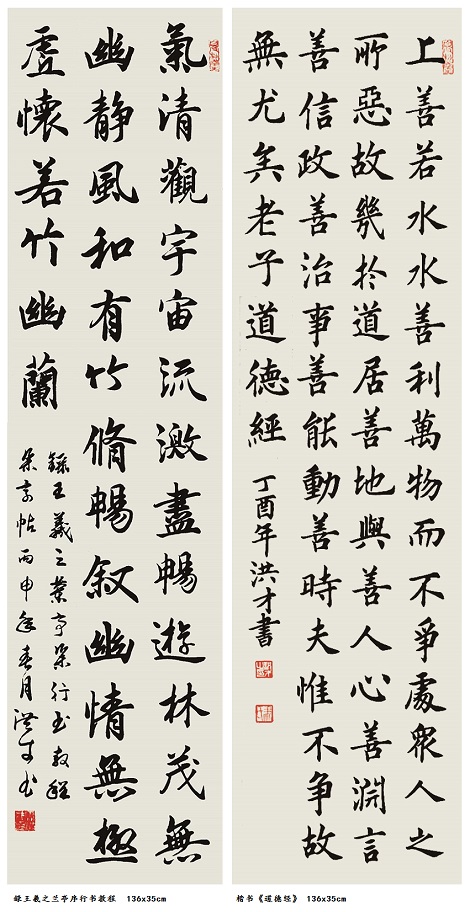 上善若水水善利萬物而不爭處衆人之
所惡故幾於道居善地與善人心善淵言
善信政善治事善能動善時夫惟不争故
無尤矣老子道德經
丁酉年洪才書
氣清觀宇宙流激盡暢遊林茂無
幽静風和有竹脩暢叙幽情無極
虚懷若竹幽蘭
録王羲之蘭亭集行书教程
集字帖丙申年春月洪才书
録王羲之兰亭序行书教程 136x35cm
楷书《道德经》 136x35cm